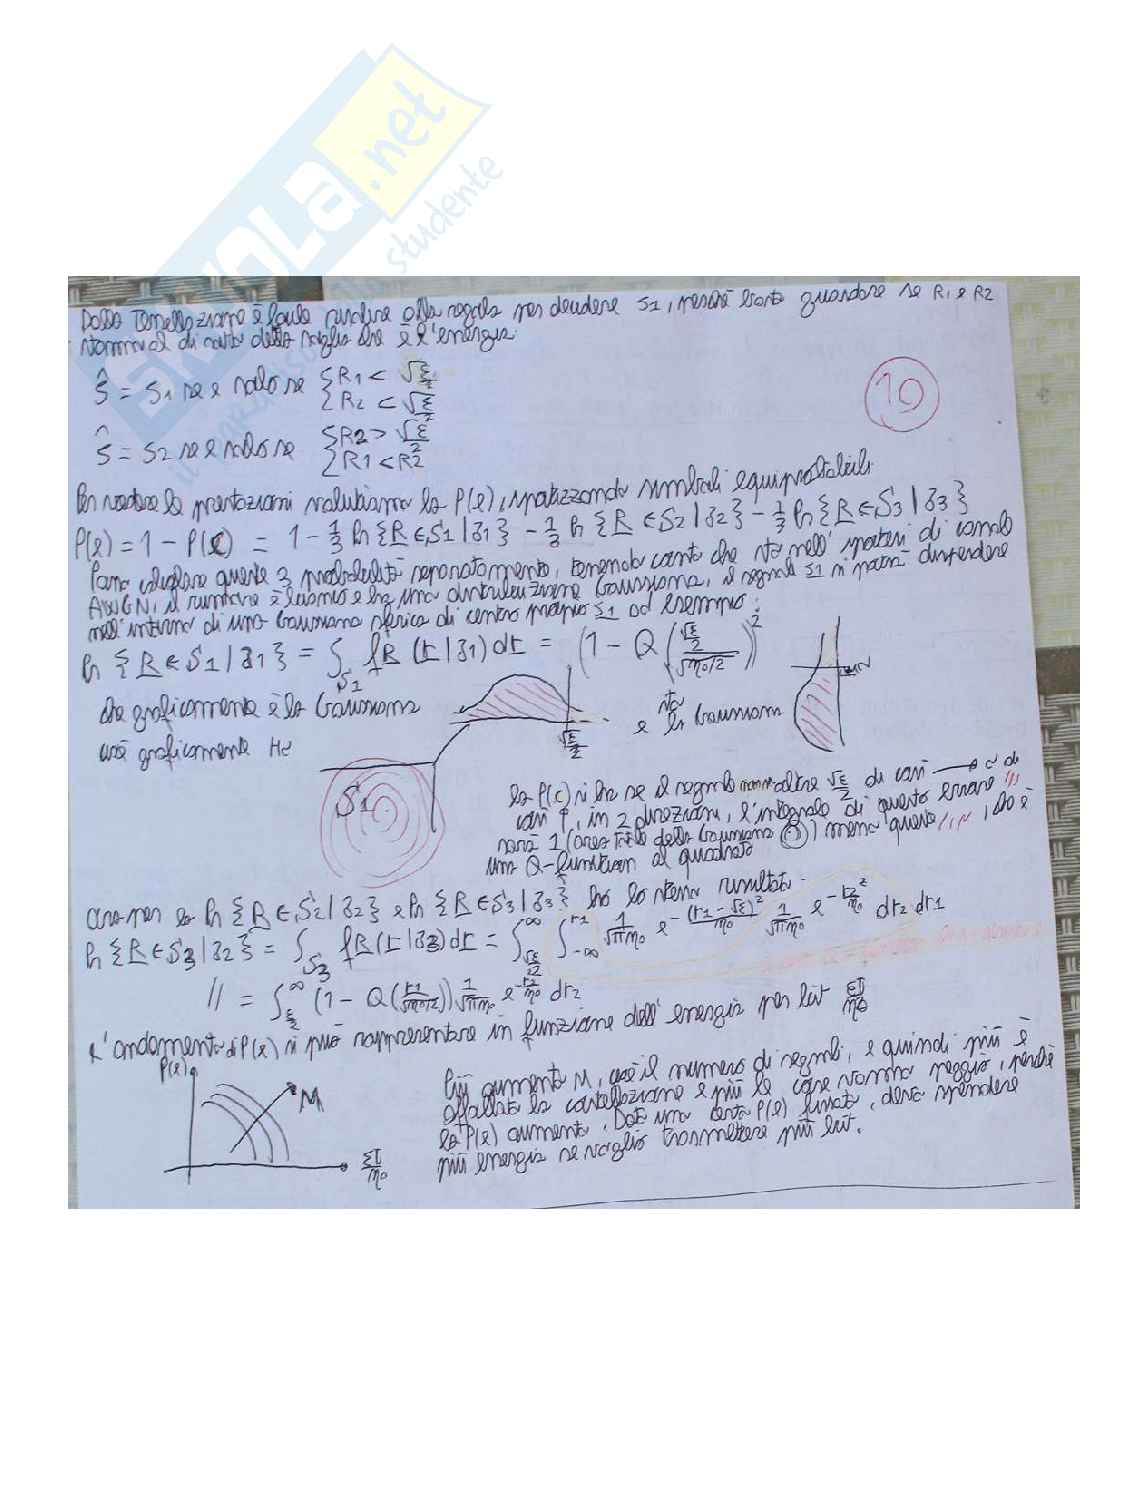 SKUOLA.net
studente
Dalla Tassellazione è facile risalire alla regola per decidere S1, perché basta guardare se R1 e R2
sommità di metà della soglia che è l'energia.
Ŝ = S1 se e solo se { R1 < √ε/2
{ R2 < √ε/2
19
Ŝ = S2 se e solo se { R2 > √ε/2
{ R1 < R2
Per vedere le prestazioni valutiamo la P(e), ipotizzando simboli equiprobabili.
P(e) = 1 - P(c) = 1 - 1/3 Pr {R ∈ S1 | s1} - 1/3 Pr {R ∈ S2 | s2} - 1/3 Pr {R ∈ S3 | s3}
Posso calcolare queste 3 probabilità separatamente, tenendo conto che sto nell'ipotesi di canale
AWGN, il rumore è bianco e ha una distribuzione Gaussiana, il segnale s1 si potrà disperdere
nell'intorno di una Gaussiana sferica di centro proprio s1 ad esempio:
Pr {R ∈ S1 | s1} = ∫S1 fR (r | s1) dr = (1 - Q (√ε/2 / √η0/2))²
che graficamente è la Gaussiana
e sta la Gaussiana
√ε/2
così graficamente
S1
la P(c) si ha se il segnale non va oltre √ε/2 di così → o di
così ↑, in 2 direzioni, l'integrale di questo errore
sarà 1 (area Totale della Gaussiana) meno questo, che è
una Q-function al quadrato
Ora per la Pr {R ∈ S2 | s2} e Pr {R ∈ S3 | s3} ho lo stesso risultato.
Pr {R ∈ S3 | s2} = ∫S3 fR (r | s3) dr = ∫√ε/2^∞ ∫-∞^r1 1/√πη0 e^-(r1-√ε)²/η0 1/√πη0 e^-r2²/η0 dr2 dr1
// = ∫ε/2^∞ (1 - Q(r1/√η0/2)) 1/√πη0 e^-r2/η0 dr2
L'andamento di P(e) si può rappresentare in funzione dell'energia per bit ξI/η0
P(e)
M
ξI/η0
Più aumento M, cioè il numero di segnali, e quindi più è
affollata la costellazione e più le cose vanno peggio, perché
la P(e) aumenta. Data una certa P(e) fissata, devo spendere
più energia se voglio trasmettere più bit.